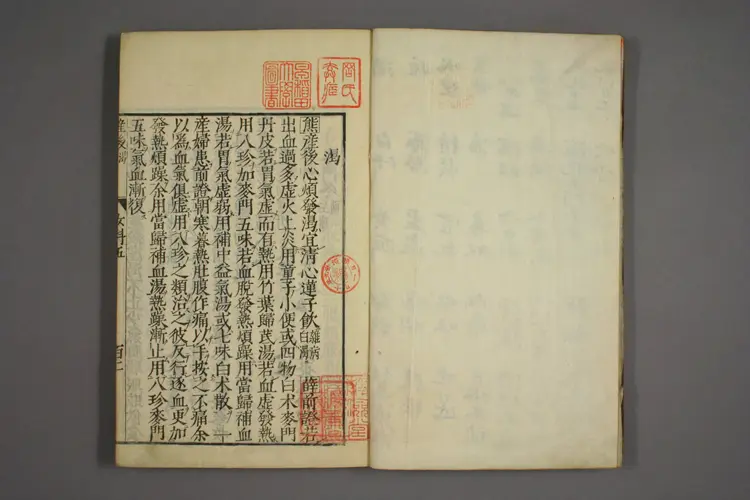 渴
熊産後心煩發渴宜清心蓮子飲雜病白濁薛前證若
出血過多虛火上炎用童子小便或四物白朮麥門
丹皮若胃氣虛而有熱用竹葉歸芪湯若血虛發熱
用八珍加麥門五味若血脫發熱煩躁用當歸補血
湯若胃氣虛弱用補中益氣湯或七味白朮散一
産婦患前證朝寒暮熱肚腹作痛以手按之不痛余
以為血氣俱虛用八珍之類治之彼反行逐血更加
發熱煩躁余用當歸補血湯熱躁漸止用八珍麥門
五味氣血漸復
産後渴
女科五